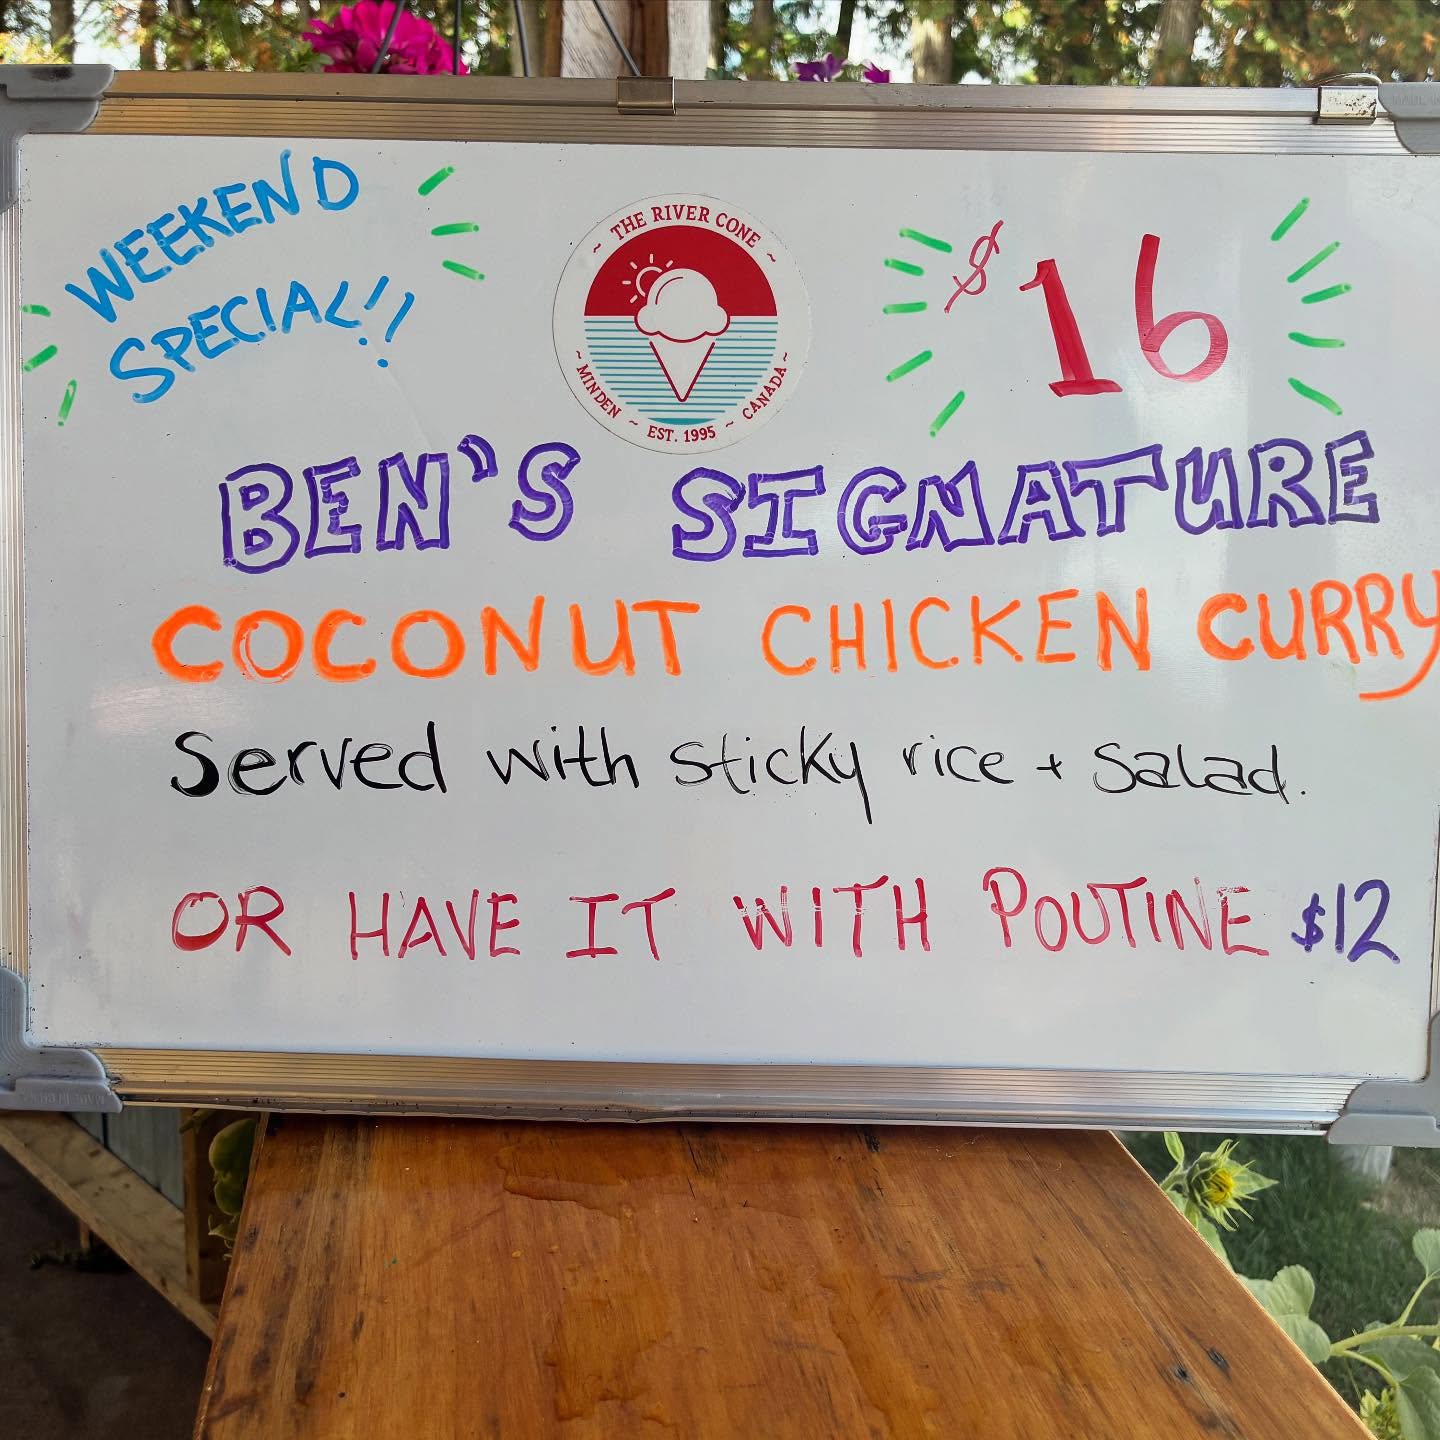 WEEKEND
SPECIAL!!
~ THE RIVER CONE ~
~ MINDEN ~ EST. 1995 ~ CANADA ~
$16
BEN'S SIGNATURE
COCONUT CHICKEN CURRY
Served with sticky rice + Salad.
OR HAVE IT WITH POUTINE $12